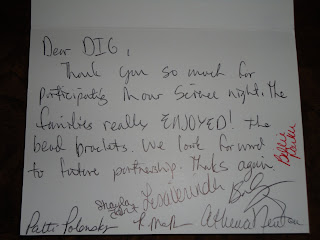 Dear DIG,
Thank you so much for
participating in our Science night. The
families really ENJOYED! the
bead braclets. We look forward
to future partnership. Thanks again.
Patti Polansky
Athena